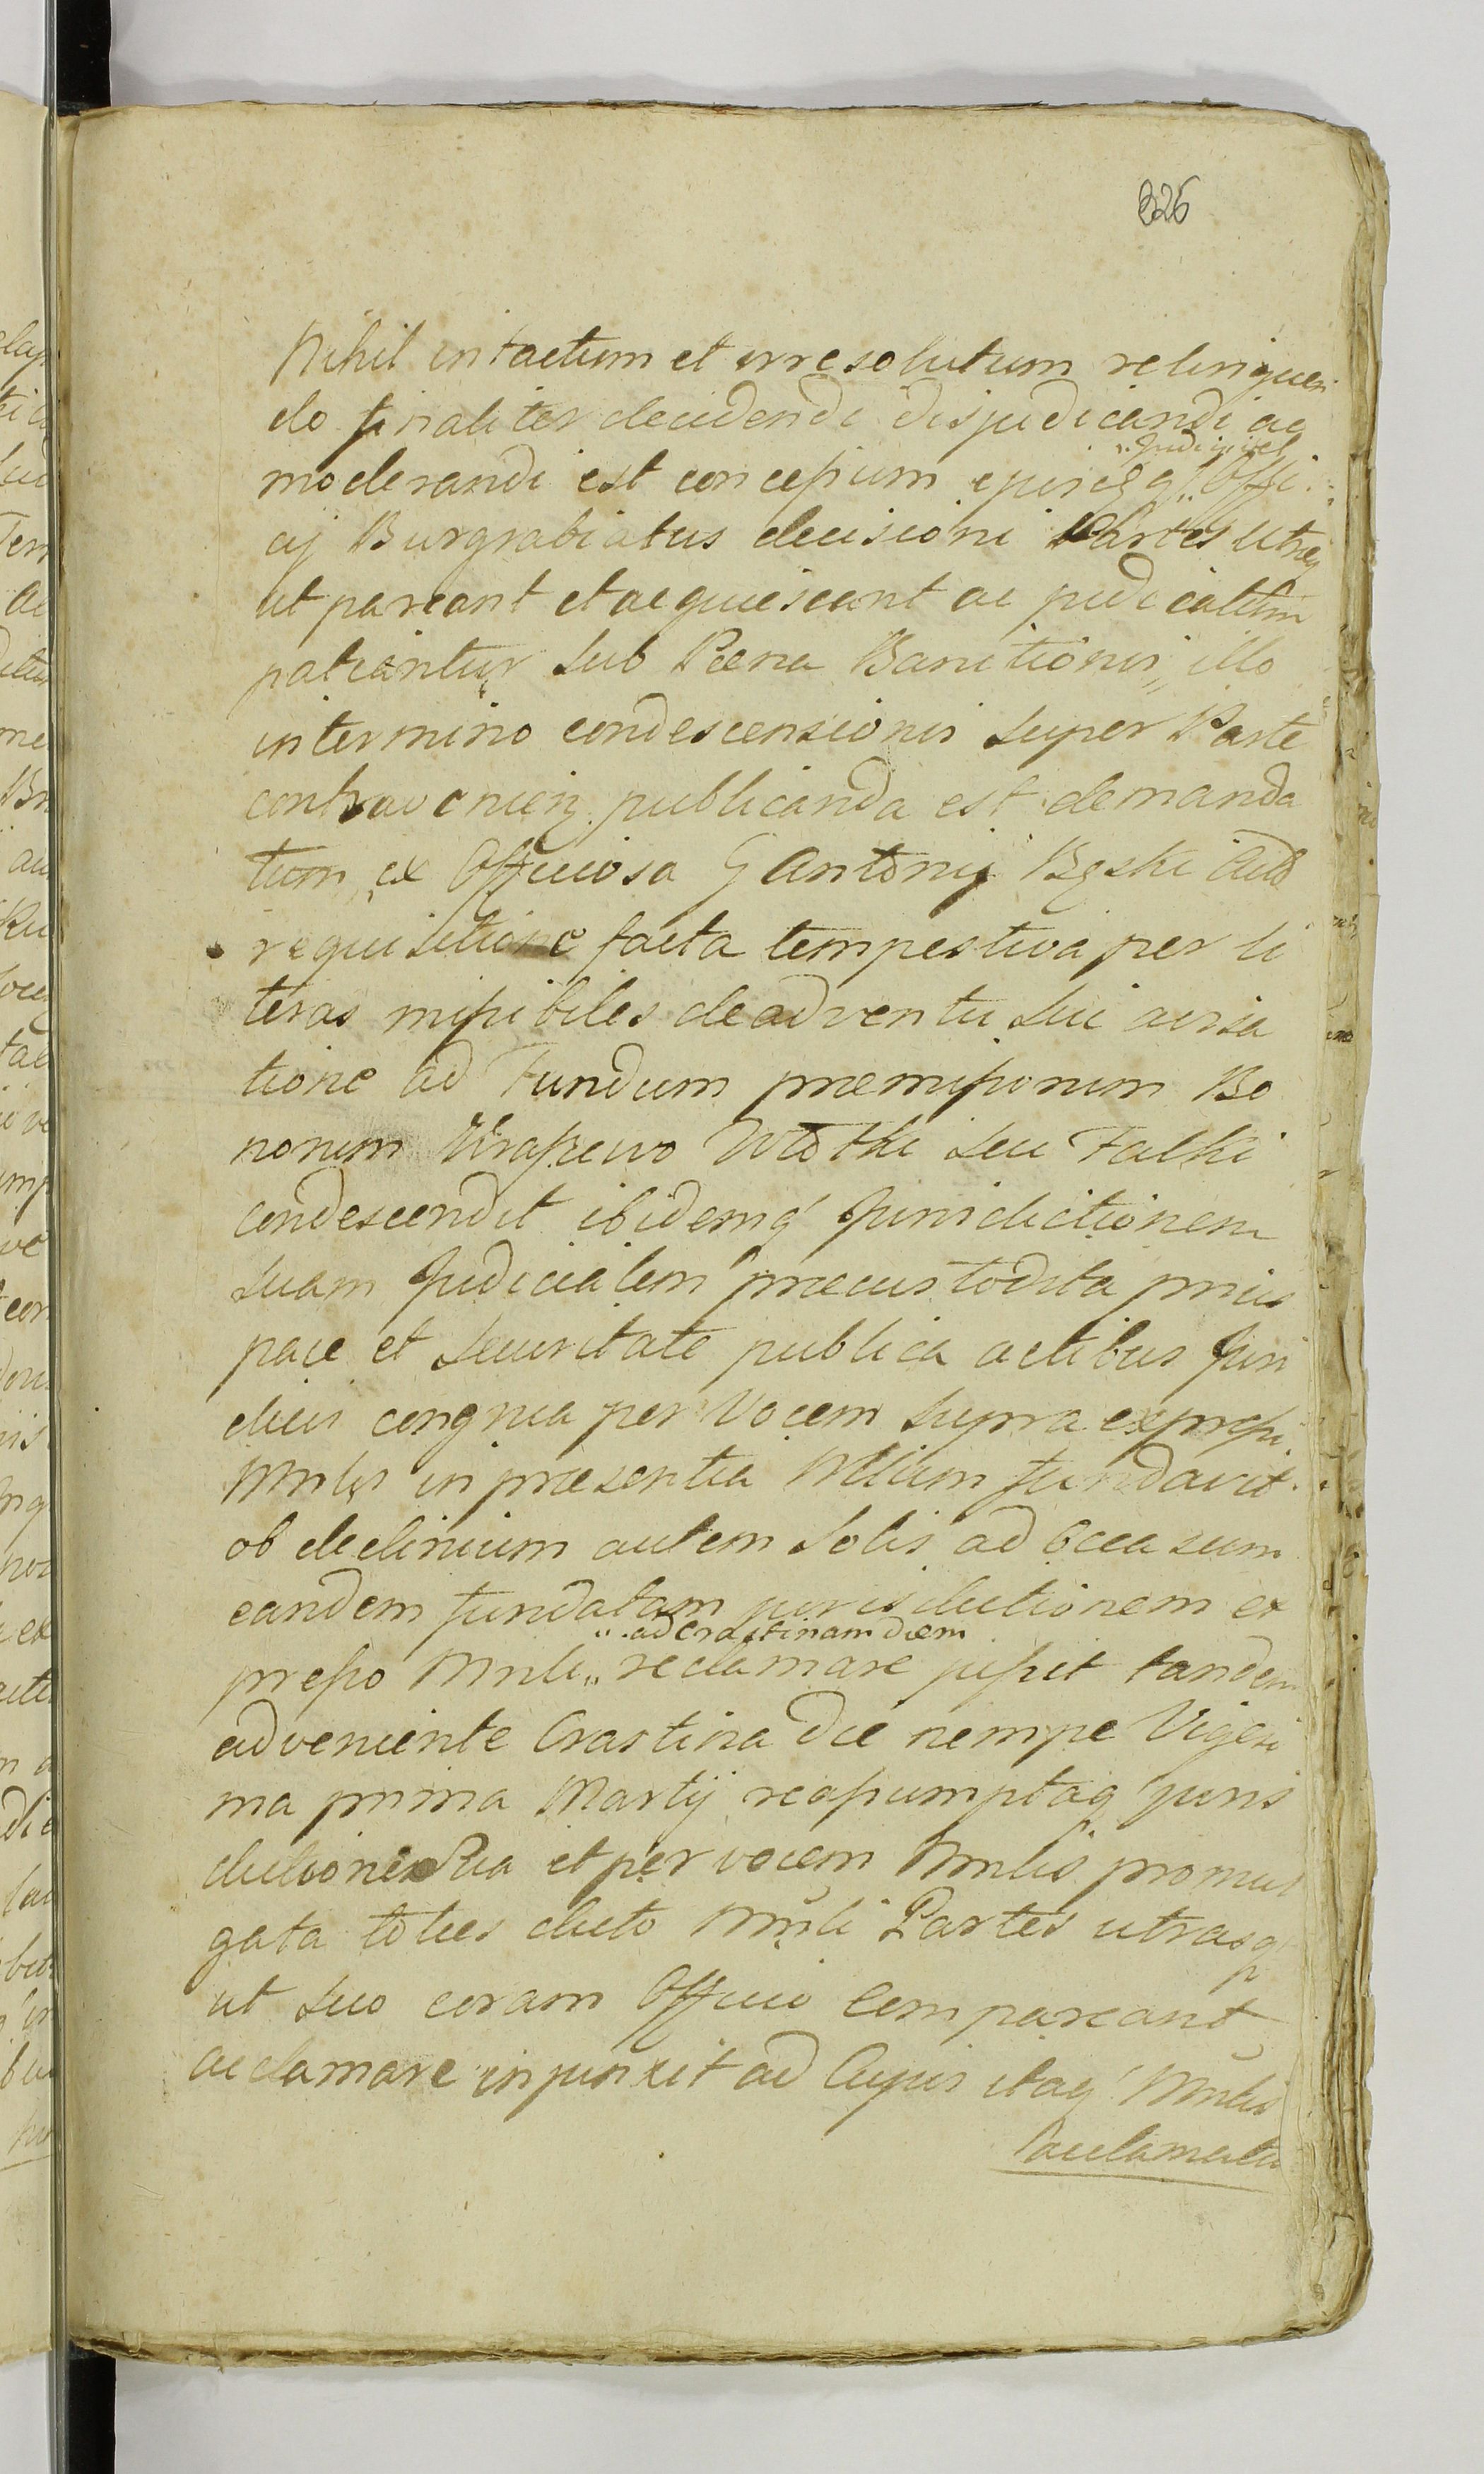 326
Nihil intactum et irresolutum relinquen
do finaliter decidendi disjudicandi ac
Judicij vel
moderandi est concessum ejusq Offi
cij Burgrabiatus decisioni Partes utreq
ut pareant et acquiescant ac judicatum
patiantur sub Poena Banitionis illo
in termino condescensionis super Parte
contravenien publicanda est demanda
tum, ex Officiosa G Antonij Bgski
requisitione facta tempestiva per li
teras missibiles de adventu sui avisa
tione ad Fundum praemissorum Bo
norum Krassewo Wtotki seu Falki
condescendit ibidemq Jurisdictionem
suam Judicialem praecustodita prius
pace et securitate publica actibus Juri
dicis congrua per vocem supra expressi
Mnlis in praesentia Ptium fundavit
ob declinium autem Solis ad Occasum
eandem fundatam jurisdictionem ex
ad Crastinam diem
presso Mnli reclamare jussit tandem
adveniente Crastina die nempe Vigesi
ma prima Martij reassumptaq Juris
dictione Sua et per vocem Mnlis promul
gata toties dicto Mnli Partes utrasq
ut suo coram Officio compareant
acclamare injunxit ad Cujus itaq Mnlis
acclamatio